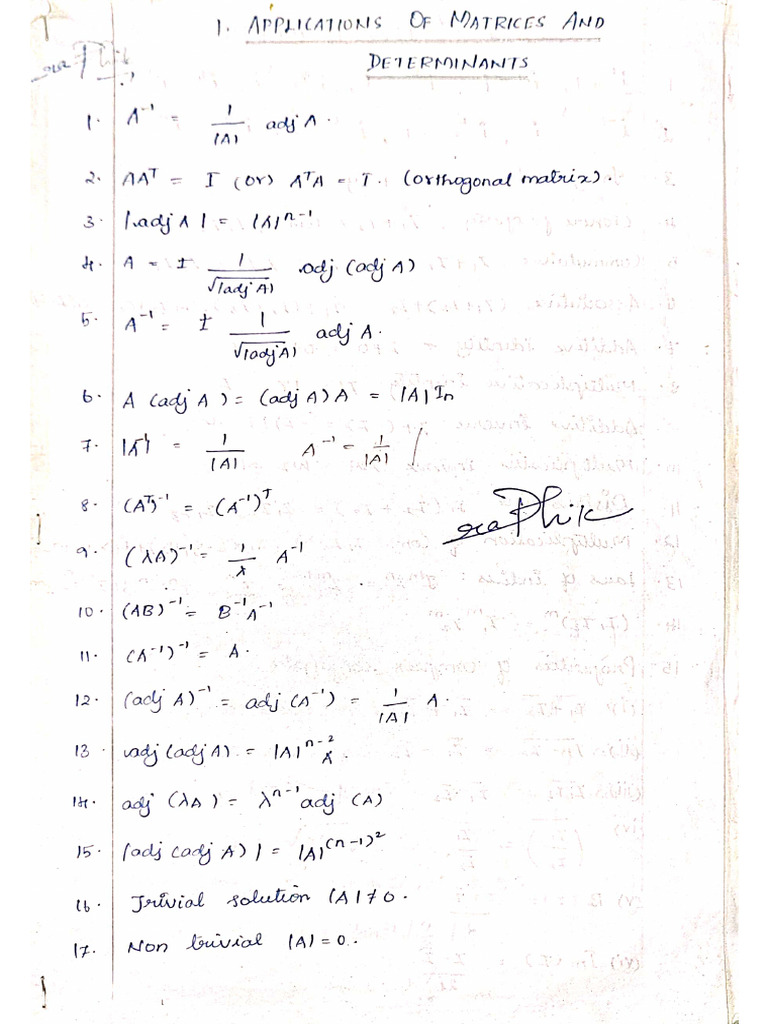 1. APPLICATIONS OF MATRICES AND
DETERMINANTS
1. A⁻¹ = 1/|A| adj A.
2. AAᵀ = I (or) AᵀA = I. (orthogonal matrix).
3. |adj A| = |A|ⁿ⁻¹
4. A = ± 1/√|adj A| adj (adj A)
5. A⁻¹ = ± 1/√|adj A| adj A.
6. A (adj A) = (adj A) A = |A| Iₙ
7. |A⁻¹| = 1/|A| A⁻¹ = 1/|A|
8. (Aᵀ)⁻¹ = (A⁻¹)ᵀ
9. (λA)⁻¹ = 1/λ A⁻¹
10. (AB)⁻¹ = B⁻¹A⁻¹
11. (A⁻¹)⁻¹ = A.
12. (adj A)⁻¹ = adj (A⁻¹) = 1/|A| A.
13. adj (adj A) = |A|ⁿ⁻² A.
14. adj (λA) = λⁿ⁻¹ adj (A)
15. |adj (adj A)| = |A|⁽ⁿ⁻¹⁾²
16. Trivial solution |A| ≠ 0.
17. Non trivial |A| = 0.